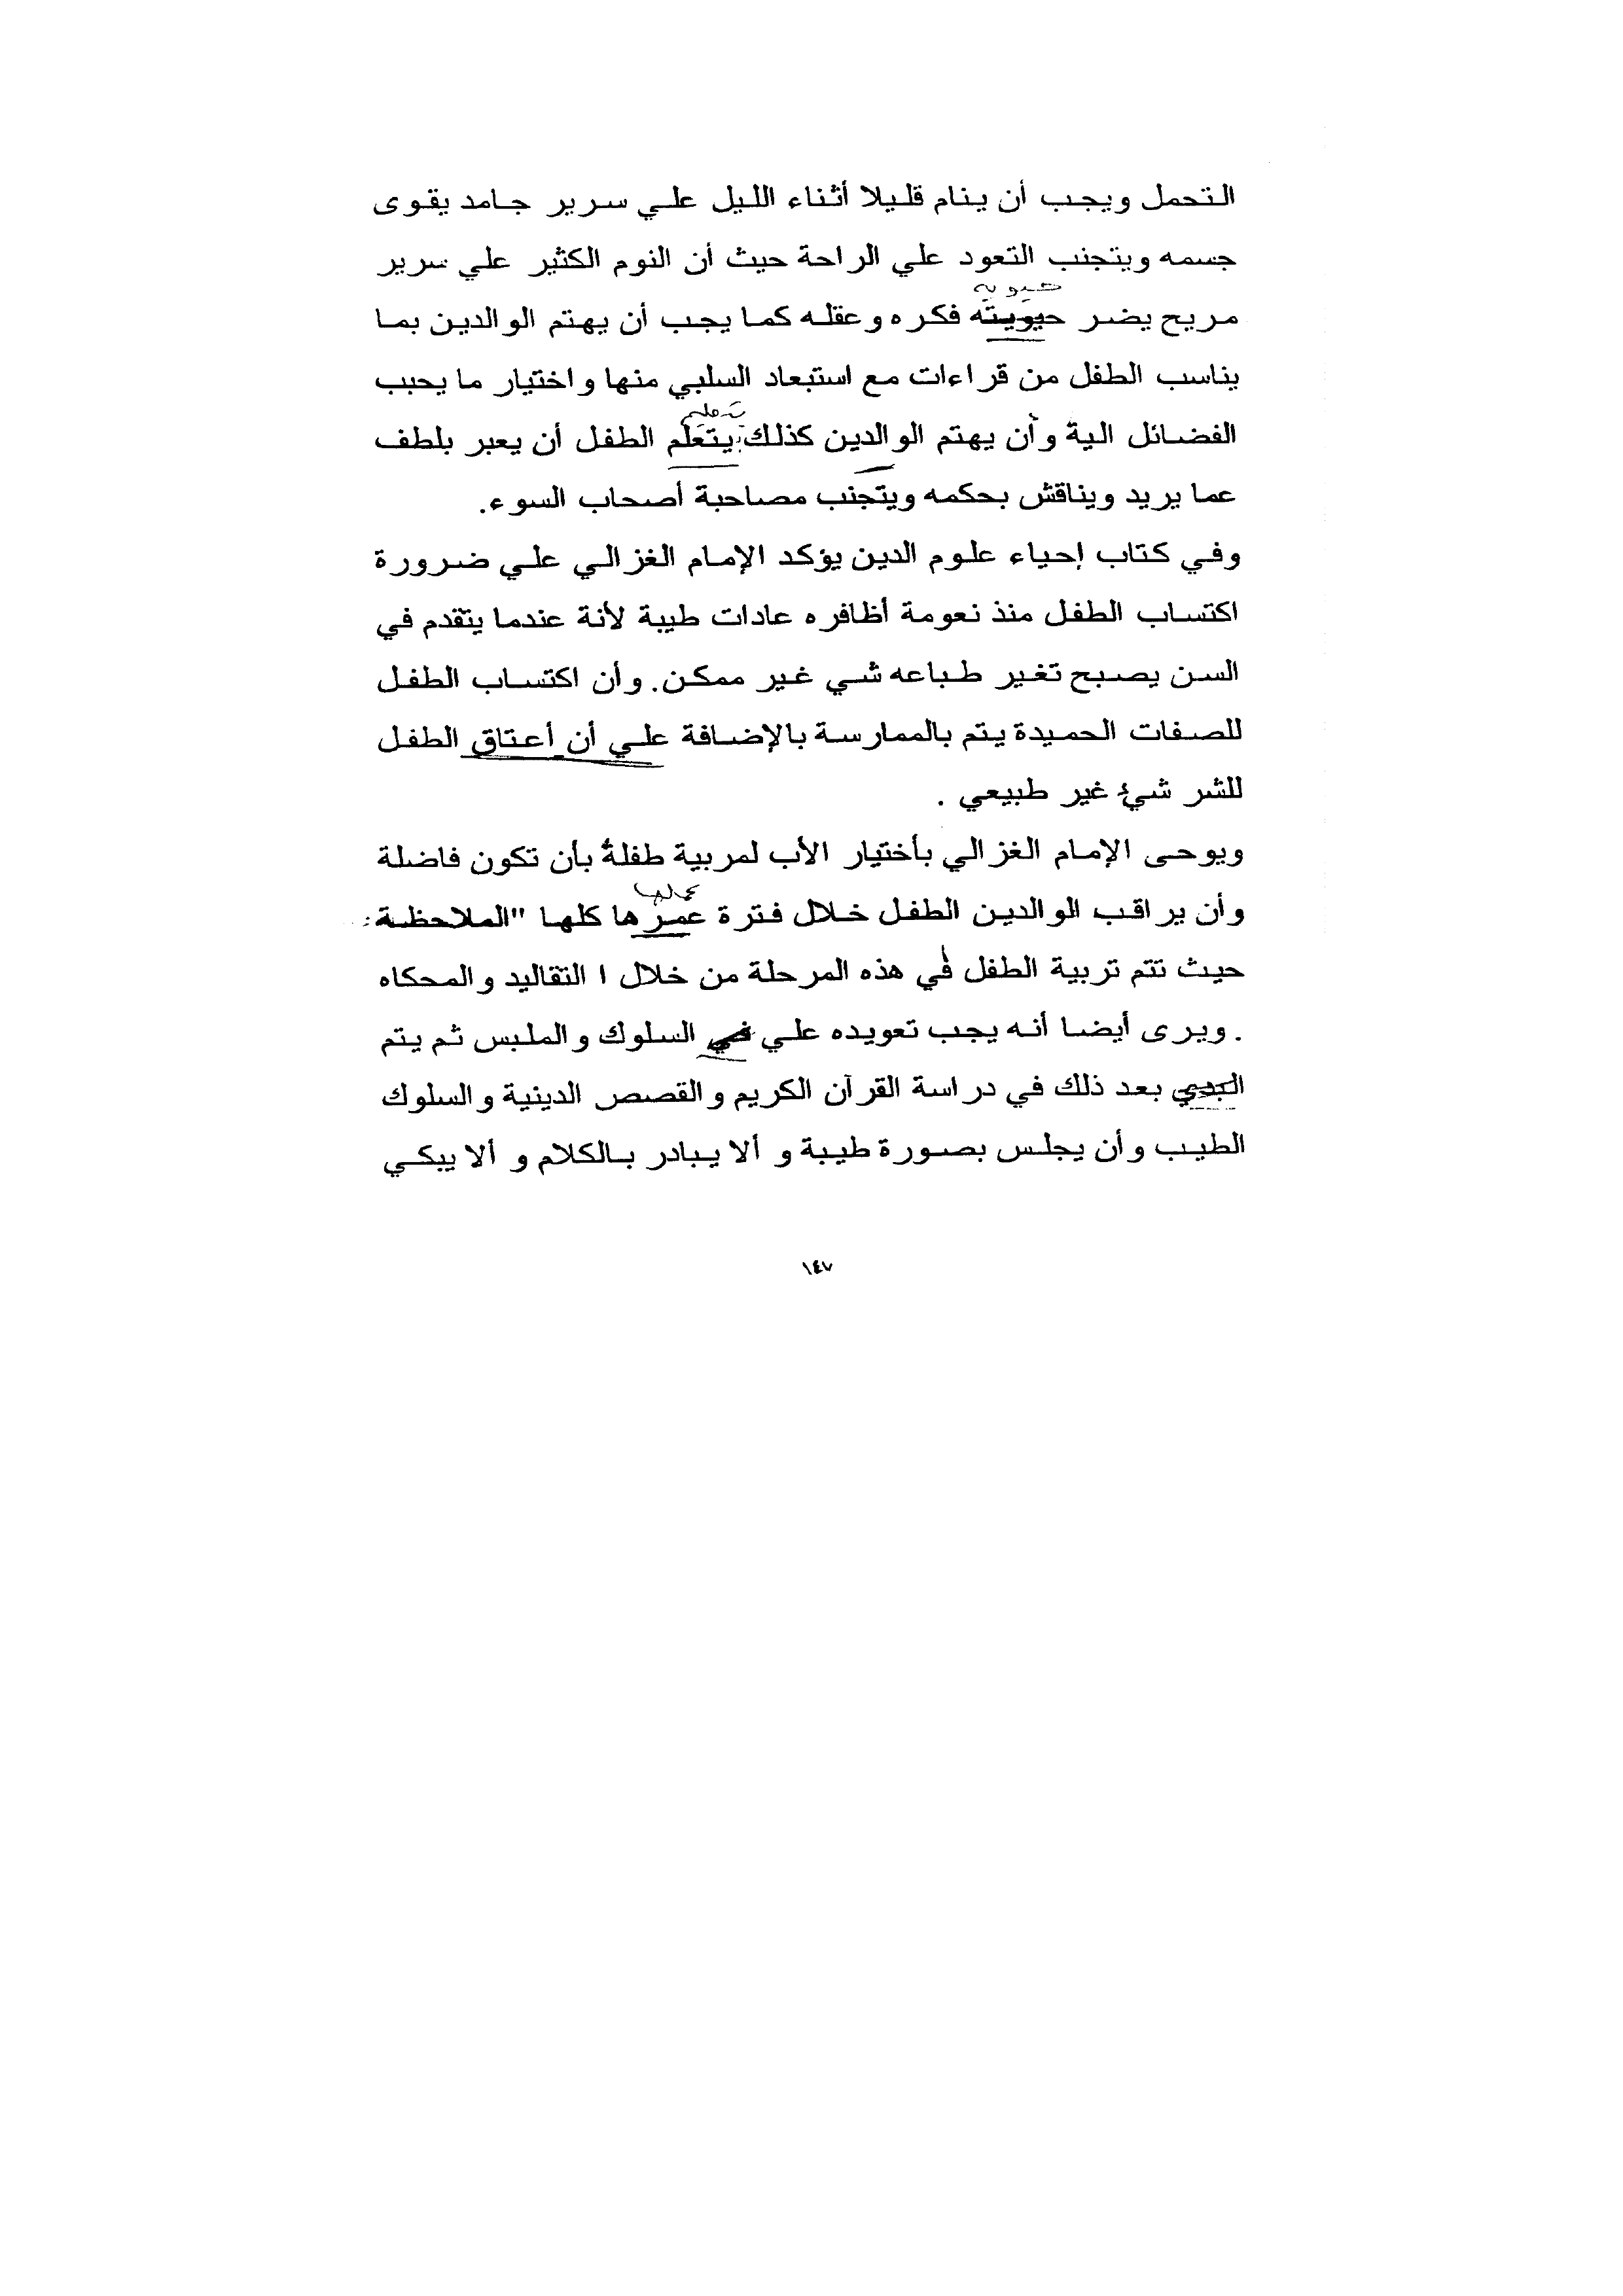 التحمل ويجب أن ينام قليلا أثناء الليل علي سرير جامد يقوى
جسمه ويتجنب التعود علي الراحة حيث أن النوم الكثير علي سرير
مريح يضر حيويته فكره وعقله كما يجب أن يهتم الوالدين بما
يناسب الطفل من قراءات مع استبعاد السلبي منها واختيار ما يحبب
الفضائل الية وأن يهتم الوالدين كذلك يتعلم الطفل أن يعبر بلطف
عما يريد ويناقش بحكمه ويتجنب مصاحبة أصحاب السوء.
وفي كتاب إحياء علوم الدين يؤكد الإمام الغزالي علي ضرورة
اكتساب الطفل منذ نعومة أظافره عادات طيبة لأنة عندما يتقدم في
السن يصبح تغير طباعه شي غير ممكن. وأن اكتساب الطفل
للصفات الحميدة يتم بالممارسة بالإضافة علي أن أعتاق الطفل
للشر شئ غير طبيعي .
ويوحى الإمام الغزالي بأختيار الأب لمربية طفلة بأن تكون فاضلة
وأن يراقب الوالدين الطفل خلال فترة عمرها كلها "الملاحظة
حيث تتم تربية الطفل في هذه المرحلة من خلال ا التقاليد والمحكاه
. ويرى أيضا أنه يجب تعويده علي في السلوك والملبس ثم يتم
البدي بعد ذلك في دراسة القرآن الكريم والقصص الدينية والسلوك
الطيب وأن يجلس بصورة طيبة و ألا يبادر بالكلام و ألا يبكي
١٤٧